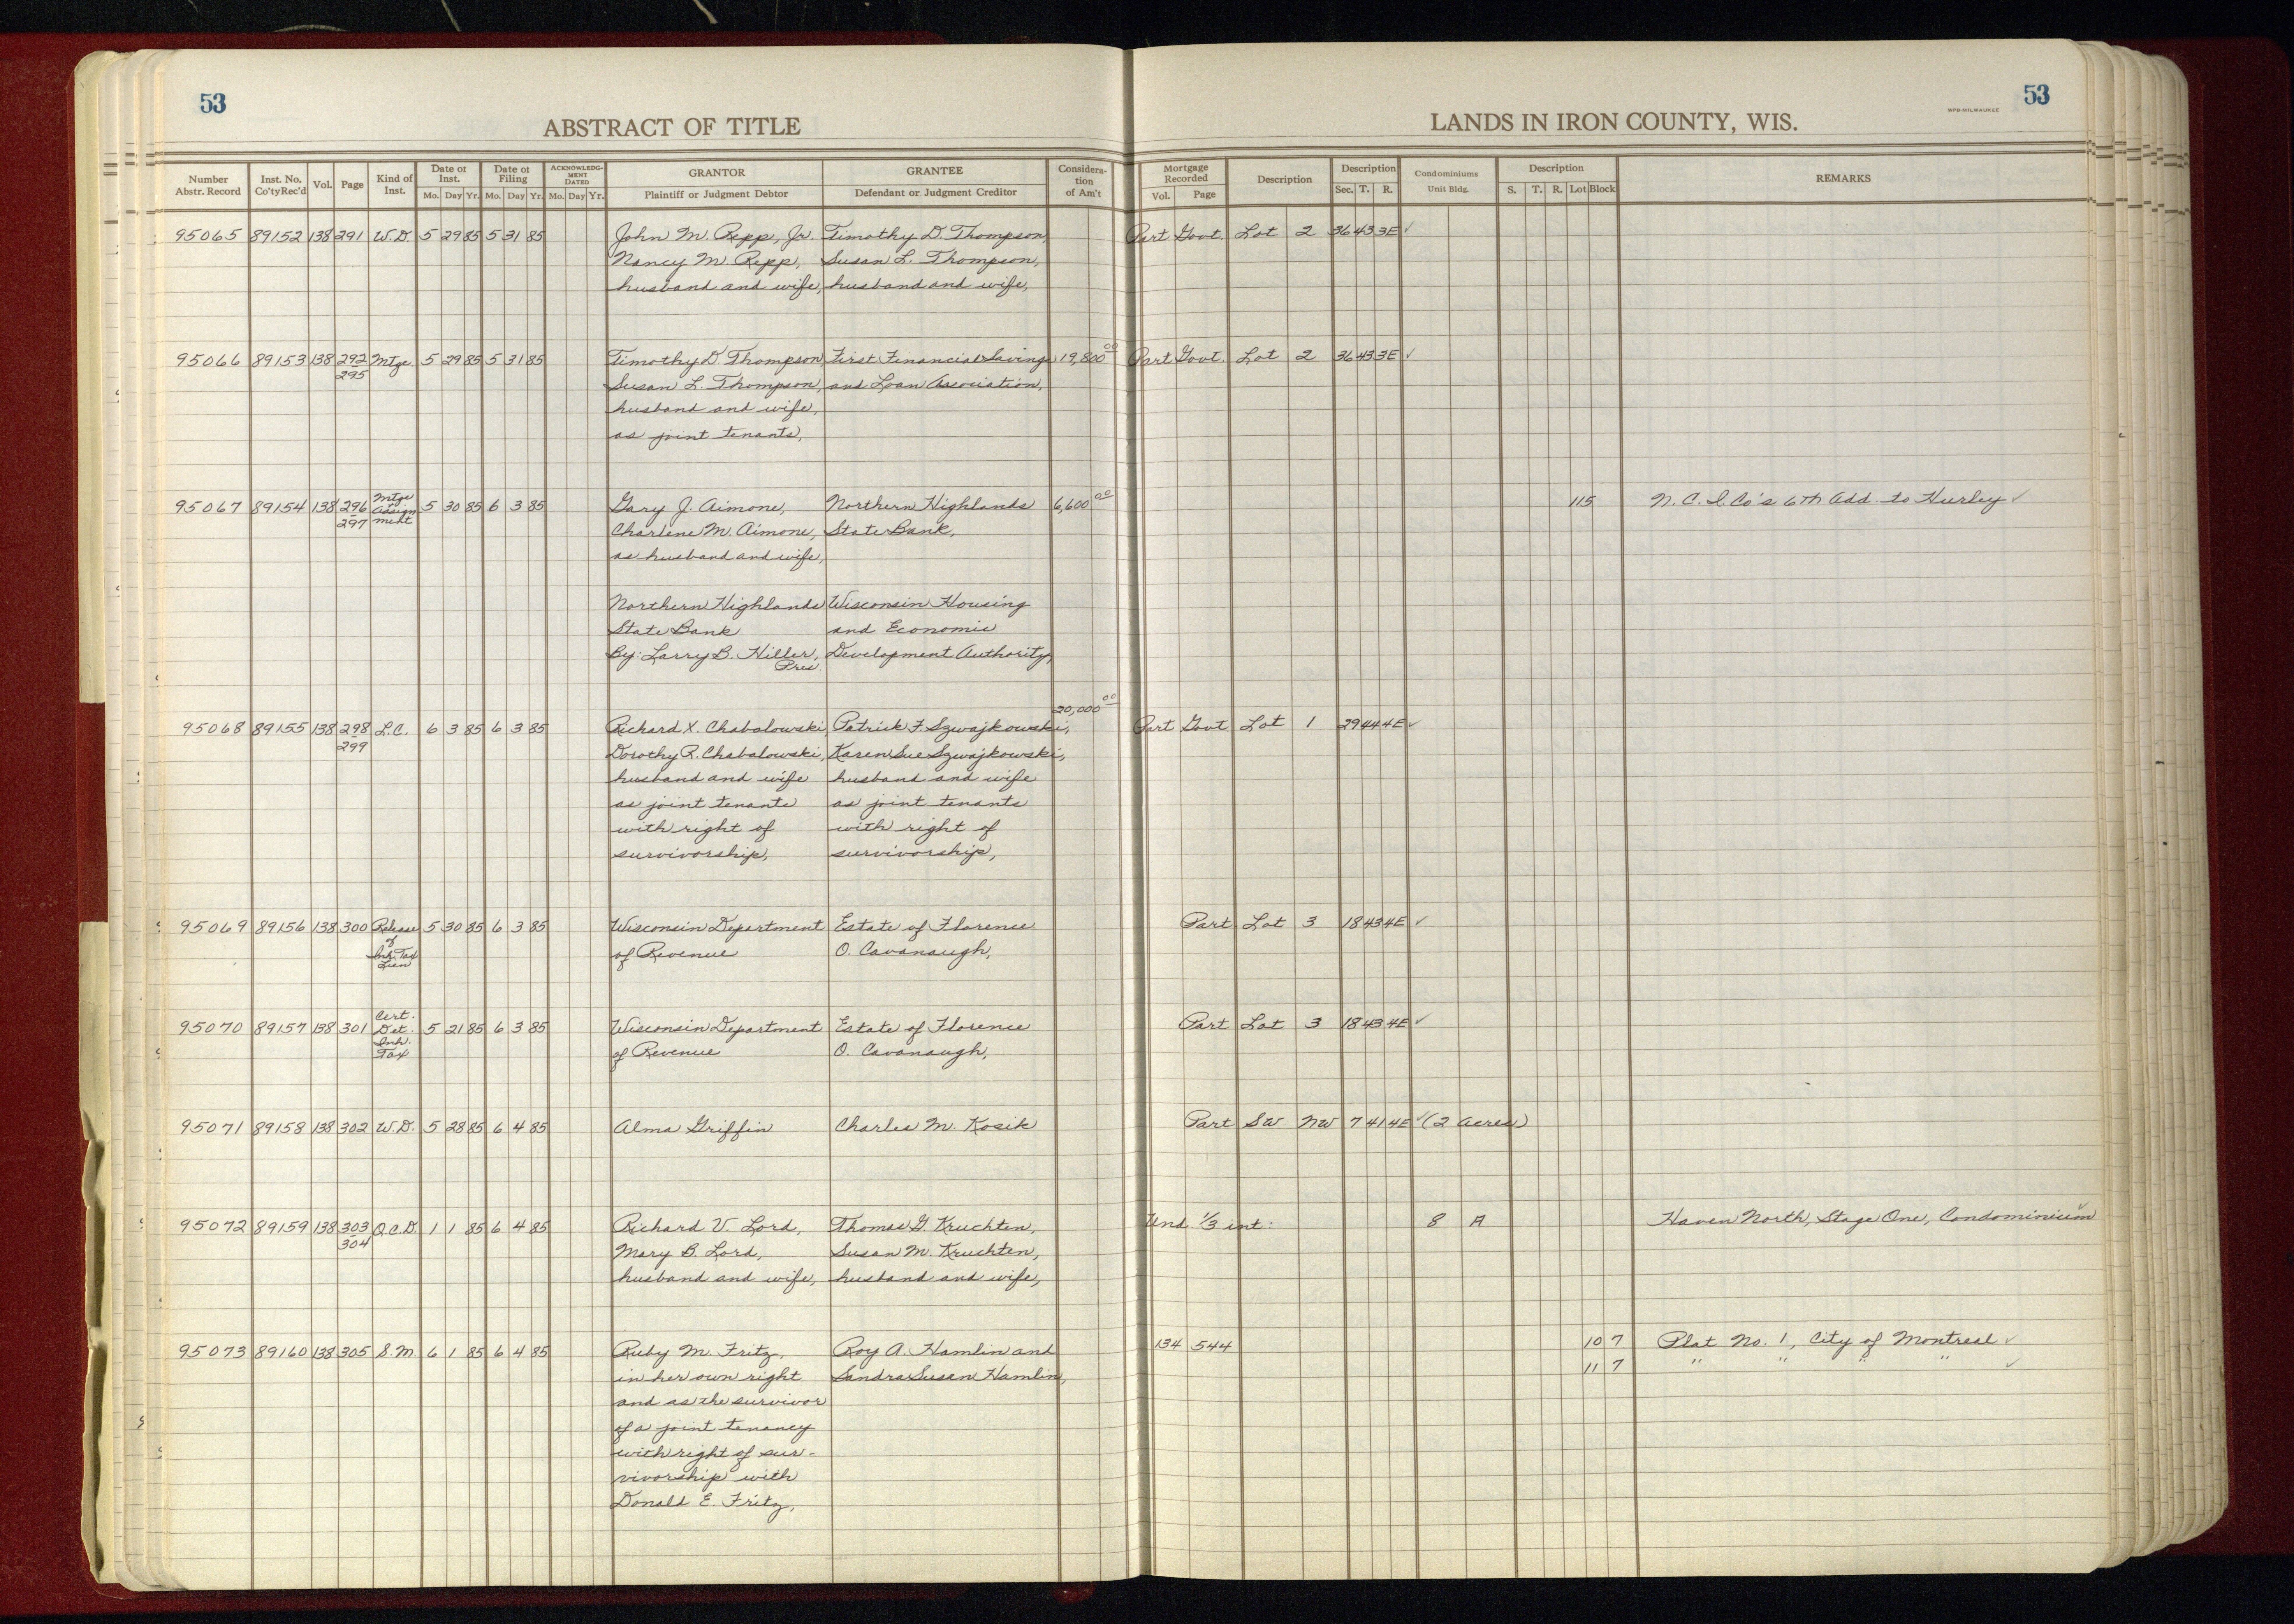 53
ABSTRACT OF TITLE
LANDS IN IRON COUNTY, WIS.
WPB-MILWAUKEE
53
Number Abstr. Record | Inst. No. Co'ty Rec'd | Vol. | Page | Kind of Inst. | Date of Inst. Mo. Day Yr. | Date of Filing Mo. Day Yr. | ACKNOWLEDGMENT DATED Mo. Day Yr. | GRANTOR Plaintiff or Judgment Debtor | GRANTEE Defendant or Judgment Creditor | Consideration of Am't | Mortgage Recorded Vol. Page | Description | Description Sec. T. R. | Condominiums Unit Bldg. | Description S. T. R. Lot Block | REMARKS
95065 89152 138 291 W.D. 5 29 85 5 31 85 John M. Repp, Jr. Timothy D. Thompson, Part Govt. Lot 2 36 43 3E ✓
Nancy M. Repp, Susan L. Thompson,
husband and wife, husband and wife,
95066 89153 138 292 Mtge 5 29 85 5 31 85 Timothy D. Thompson, First Financial Savings 19,800 00 Part Govt. Lot 2 36 43 3E ✓
295 Susan L. Thompson, and Loan Association,
husband and wife,
as joint tenants,
95067 89154 138 296 297 Mtge & Assignment 5 30 85 6 3 85 Gary J. Aimone, Northern Highlands 6,600 00 115 N.C.I. Co's 6th Add. to Hurley ✓
Charlene M. Aimone, State Bank,
as husband and wife,
Northern Highlands Wisconsin Housing
State Bank and Economic
By: Larry B. Hiller, Development Authority,
Pres.
20,000 00
95068 89155 138 298 L.C. 6 3 85 6 3 85 Richard X. Chabalowski, Patrick F. Szwajkowski, Part Govt Lot 1 29 44 4E ✓
299 Dorothy R. Chabalowski, Karen Sue Szwajkowski,
husband and wife husband and wife
as joint tenants as joint tenants
with right of with right of
survivorship, survivorship,
95069 89156 138 300 Release of Inh. Tax Lien 5 30 85 6 3 85 Wisconsin Department Estate of Florence Part Lot 3 18 43 4E ✓
of Revenue O. Cavanaugh,
95070 89157 138 301 Cert. Det. Inh. Tax 5 21 85 6 3 85 Wisconsin Department Estate of Florence Part Lot 3 18 43 4E ✓
of Revenue O. Cavanaugh,
95071 89158 138 302 W.D. 5 28 85 6 4 85 Alma Griffin Charles M. Kosik Part SW NW 7 41 4E ✓ (2 Acres)
95072 89159 138 303 Q.C.D. 1 1 85 6 4 85 Richard V. Lord, Thomas G Kruchten, Und. 1/3 int: 8 A Haven North, Stage One, Condominium ✓
304 Mary B. Lord, Susan M. Kruchten,
husband and wife, husband and wife,
95073 89160 138 305 S.M. 6 1 85 6 4 85 Ruby M. Fritz, Roy A. Hamlin and 134 544 10 7 Plat No. 1, City of Montreal ✓
in her own right Sandra Susan Hamlin, 11 7 " " " " ✓
and as the survivor
of a joint tenancy
with right of sur-
vivorship with
Donald E. Fritz,